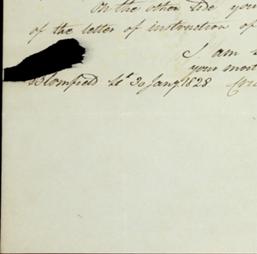 On the other side you
of the letter of instruction of
I am
your most
Blomfield St 30 Jany 1828